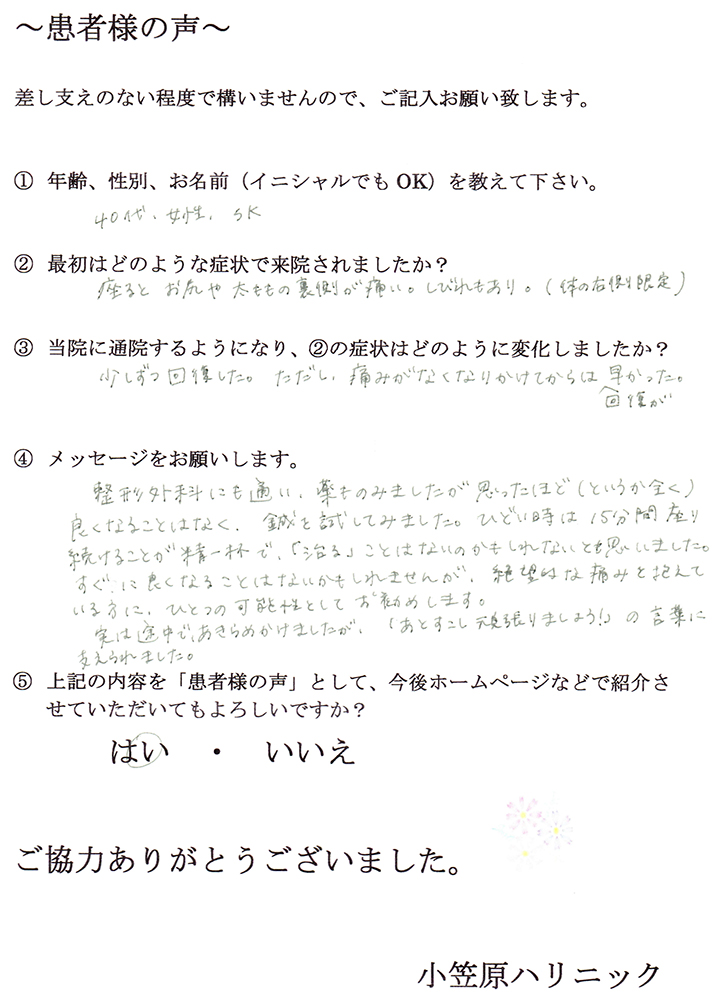 ～患者様の声～
差し支えのない程度で構いませんので、ご記入お願い致します。
① 年齢、性別、お名前（イニシャルでもOK）を教えて下さい。
40代、女性、SK
② 最初はどのような症状で来院されましたか？
座ると お尻や 太ももの裏側が痛い。しびれもあり。（体の右側限定）
③ 当院に通院するようになり、②の症状はどのように変化しましたか？
少しずつ回復した。ただし、痛みがなくなりかけてからは 早かった。
回復が
④ メッセージをお願いします。
整形外科にも通い、薬ものみましたが 思ったほど（というか全く）
良くなることはなく、鍼を試してみました。ひどい時は 15分間座り
続けることが精一杯で、「治る」ことはないのかもしれないとも思いました。
すぐに良くなることはないかもしれませんが、絶望的な痛みを抱えて
いる方に、ひとつの可能性として お勧めします。
実は途中であきらめかけましたが、「あとすこし頑張りましょう！」の言葉に
支えられました。
⑤ 上記の内容を「患者様の声」として、今後ホームページなどで紹介さ
せていただいてもよろしいですか？
はい ・ いいえ
ご協力ありがとうございました。
小笠原ハリニック